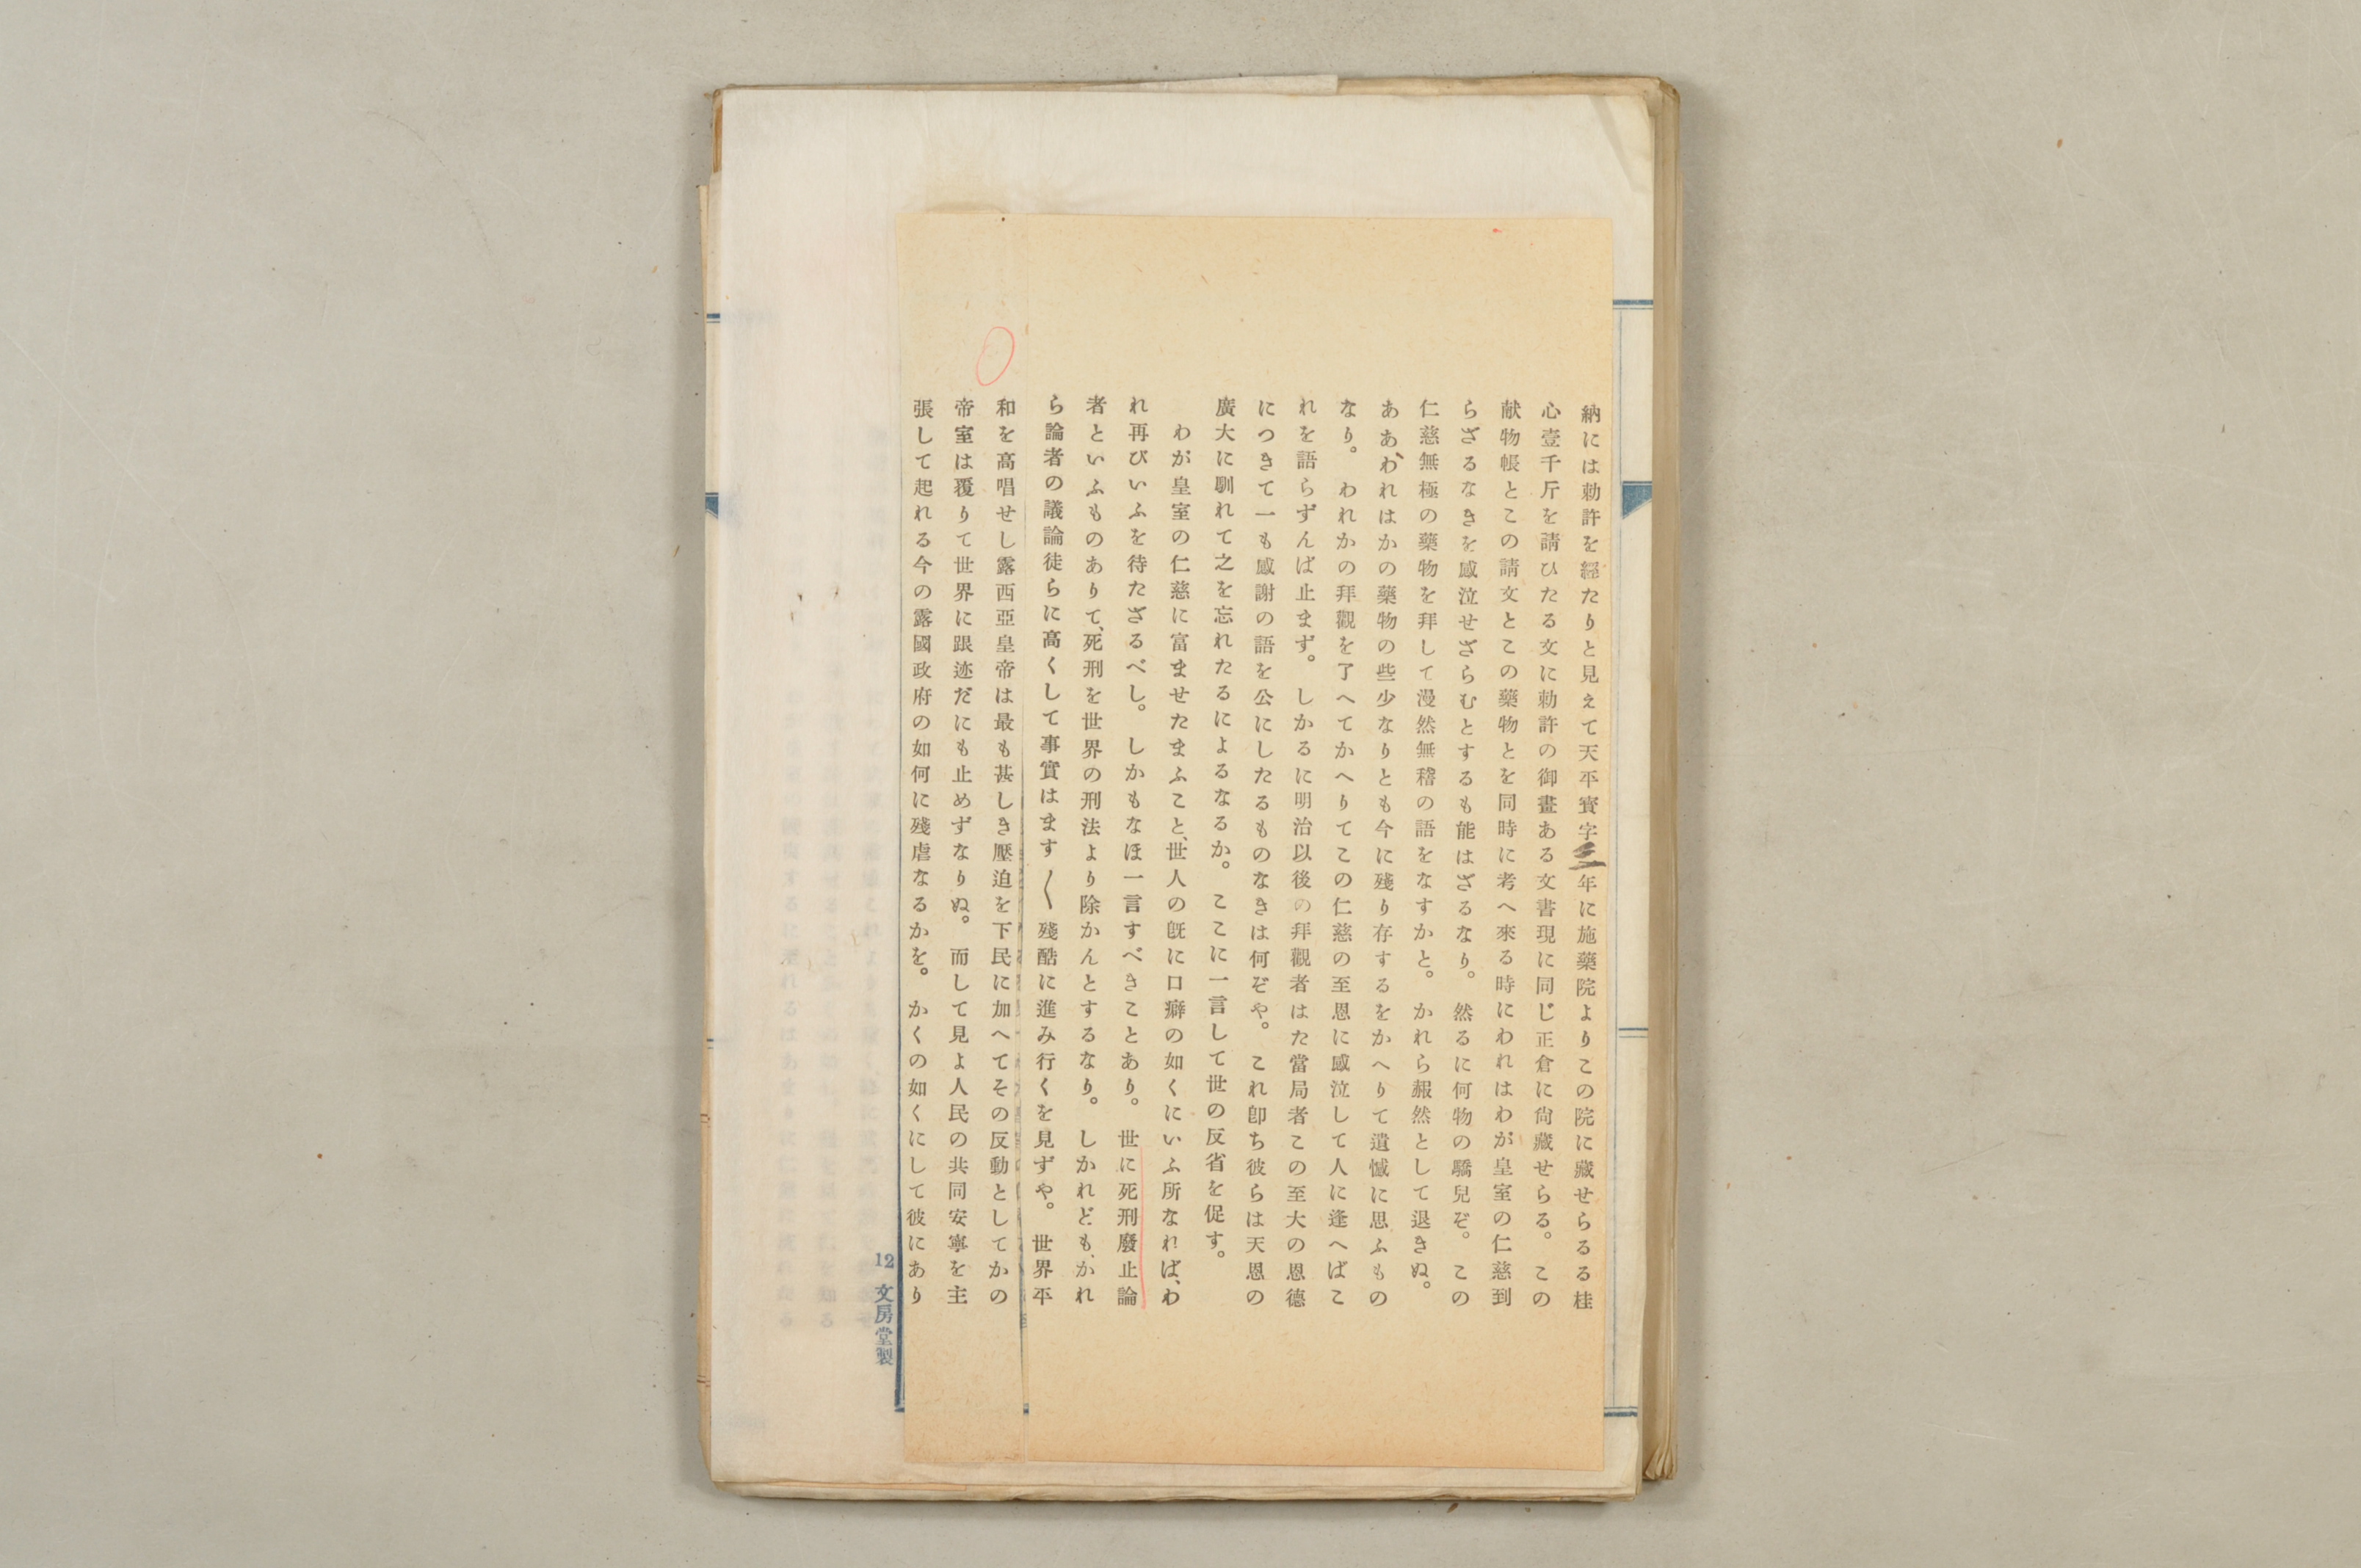 納には勅許を經たりと見えて天平寳字三年に施藥院よりこの院に藏せらる桂
心壹千斤を請ひたる文に勅許の御畫ある文書現に同じ正倉に尙藏せらる。この
献物帳とこの請文とこの藥物とを同時に考へ來る時にわれはわが皇室の仁慈到
らざるなきを感泣せざらむとするも能はざるなり。然るに何物の驕兒ぞ。この
仁慈無極の藥物を拜して漫然無稽の語をなすかと。かれら赧然として退きぬ。
ああ、われはかの藥物の些少なりとも今に殘り存するをかへりて遺憾に思ふもの
なり。われかの拜觀を了へてかへりてこの仁慈の至恩に感泣して人に逢へばこ
れを語らずんば止まず。しかるに明治以後の拜觀者はた當局者この至大の恩德
につきて一も感謝の語を公にしたるものなきは何ぞや。これ卽ち彼らは天恩の
廣大に馴れて之を忘れたるによるなるか。ここに一言して世の反省を促す。
わが皇室の仁慈に富ませたまふこと、世人の旣に口癖の如くにいふ所なれば、わ
れ再びいふを待たざるべし。しかもなほ一言すべきことあり。世に死刑廢止論
者といふものありて、死刑を世界の刑法より除かんとするなり。しかれども、かれ
ら論者の議論徒らに高くして事實はます〱殘酷に進み行くを見ずや。世界平
和を高唱せし露西亞皇帝は最も甚しき壓迫を下民に加へてその反動としてかの
帝室は覆りて世界に跟迹だにも止めずなりぬ。而して見よ人民の共同安寧を主
張して起れる今の露國政府の如何に殘虐なるかを。かくの如くにして彼にあり
12 文房堂製